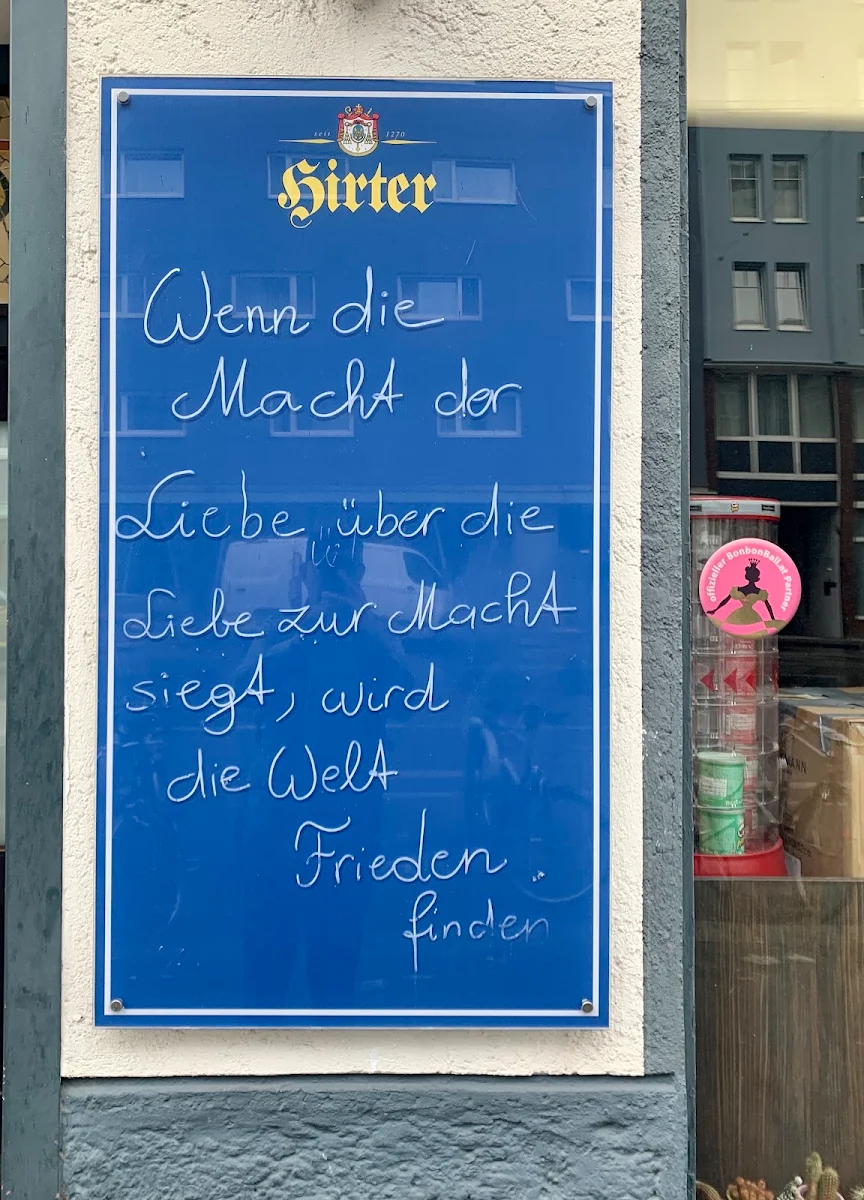 seit 1270
Hirter
Wenn die
Macht der
Liebe über die
Liebe zur Macht
siegt, wird
die Welt
Frieden.
finden
offizieller BonbonBall.at Partner